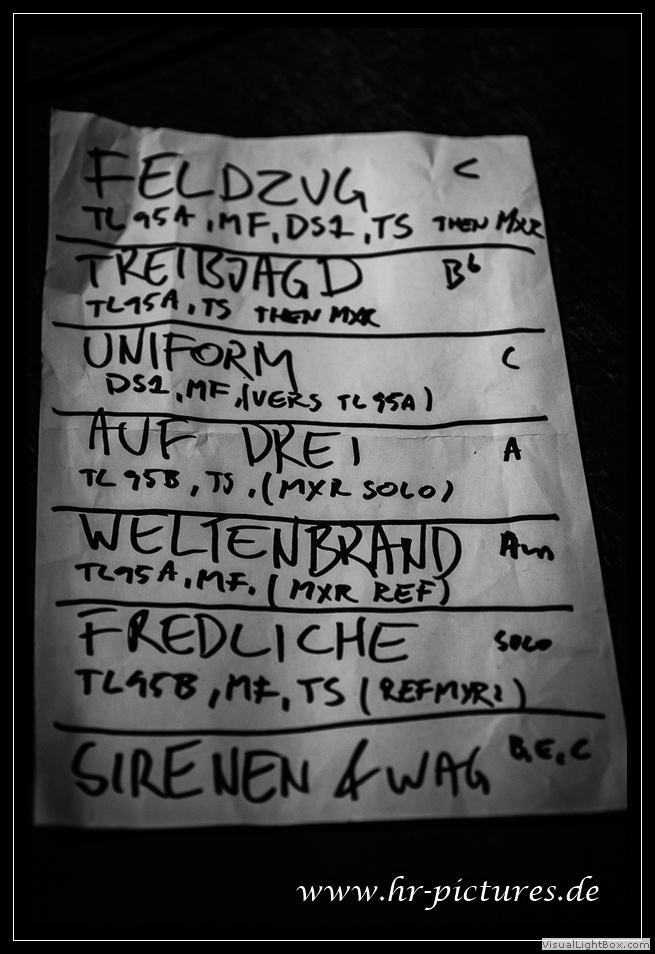 FELDZUG C
TL95A, MF, DS1, TS THEN MXR
TREIBJAGD Bb
TL95A, TS THEN MXR
UNIFORM C
DS1, MF, (VERS TL95A)
AUF DREI A
TL95B, TS, (MXR SOLO)
WELTENBRAND Am
TL95A, MF. (MXR REF)
FREDLICHE SOLO
TL95B, MF, TS
SIRENEN & WAG B, E, C
www.hr-pictures.de
VisualLightBox.com